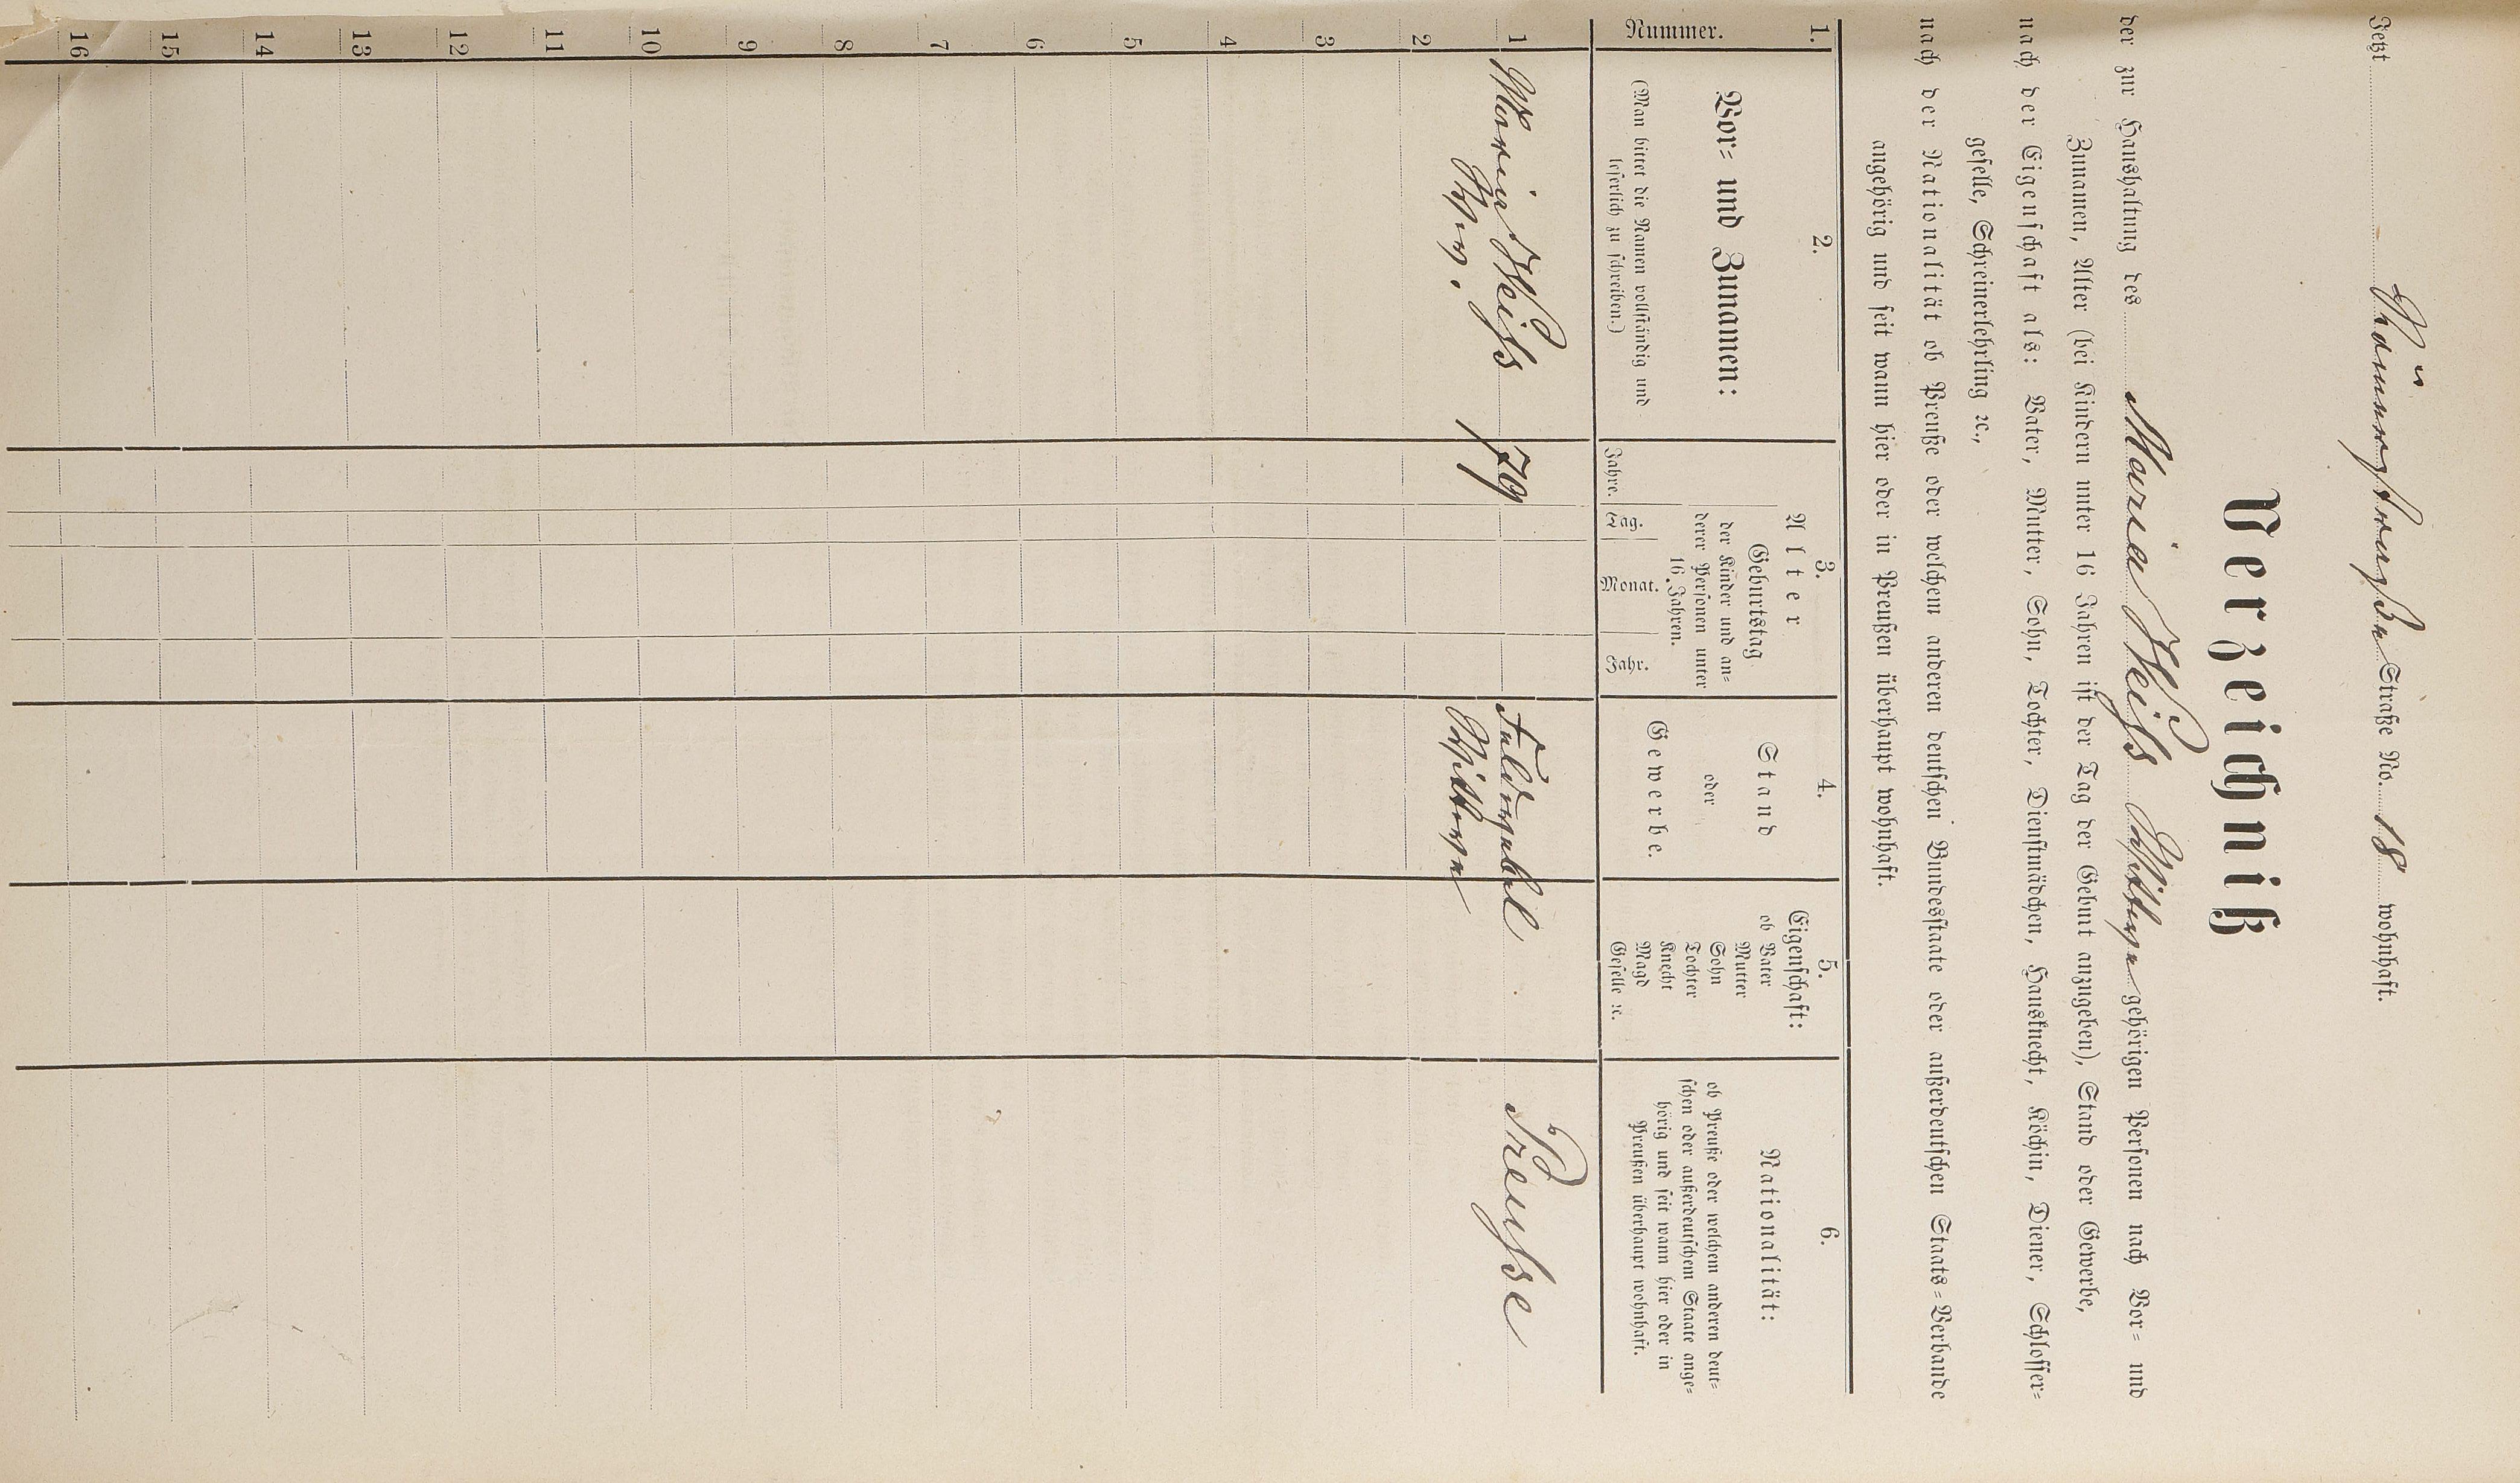 Jetzt Straße No. 18 wohnhaft.
Verzeichniß
der zur Haushaltung des Maria Weiss Wittwe gehörigen Personen nach Vor- und
Zunamen, Alter (bei Kindern unter 16 Jahren ist der Tag der Geburt anzugeben), Stand oder Gewerbe,
nach der Eigenschaft als: Vater, Mutter, Sohn, Tochter, Dienstmädchen, Hausknecht, Köchin, Diener, Schlosser-
geselle, Schreinerlehrling ꝛc.,
nach der Nationalität ob Preuße oder welchem anderen deutschen Bundesstaate oder außerdeutschen Staats-Verbande
angehörig und seit wann hier oder in Preußen überhaupt wohnhaft.
1. 2. 3. 4. 5. 6.
Nummer.
Vor- und Zunamen:
(Man bittet die Namen vollständig und
leserlich zu schreiben.)
Alter
Geburtstag
der Kinder und an-
derer Personen unter
16 Jahren.
Jahre. Tag. Monat. Jahr.
Stand
oder
Gewerbe.
Eigenschaft:
ob Vater
Mutter
Sohn
Tochter
Knecht
Magd
Geselle ꝛc.
Nationalität:
ob Preuße oder welchem anderen deut-
schen oder außerdeutschem Staate ange-
hörig und seit wann hier oder in
Preußen überhaupt wohnhaft.
1 Maria Weiss 79 Preusse
Wittwe
2
3
4
5
6
7
8
9
10
11
12
13
14
15
16